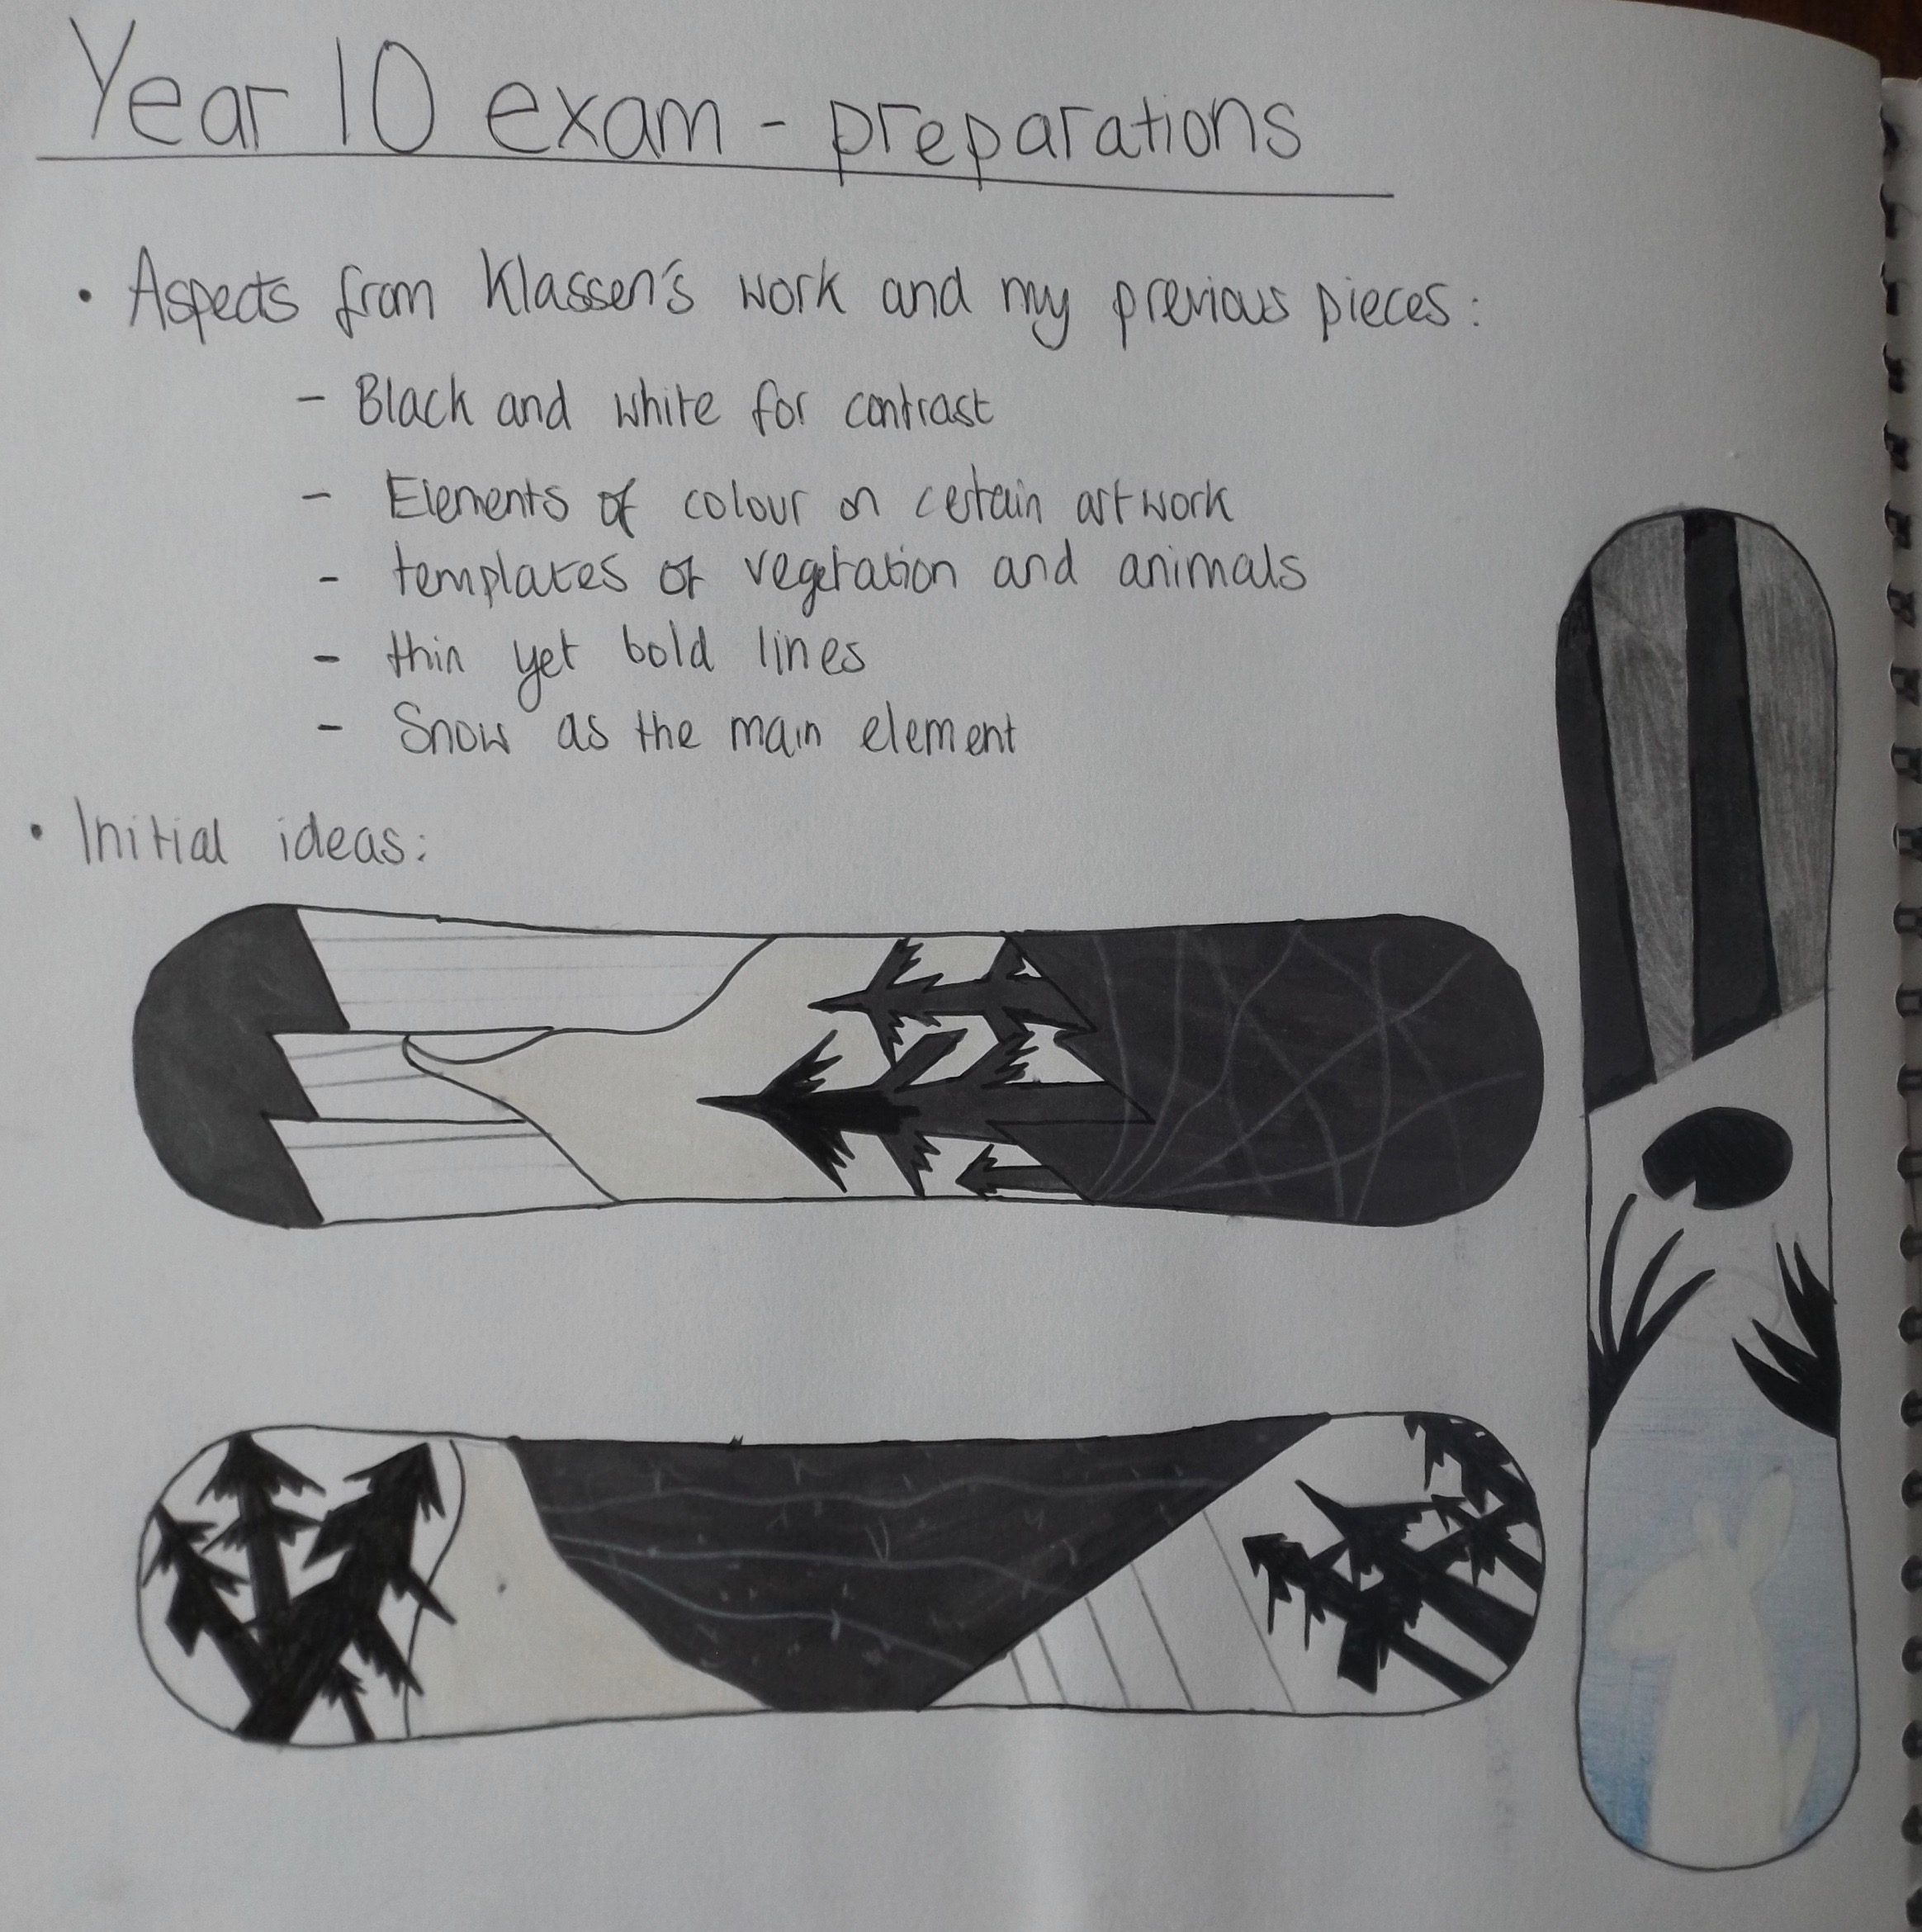 Year 10 exam - preparations
• Aspects from Klassen's work and my previous pieces:
- Black and white for contrast
- Elements of colour on certain artwork
- templates of vegetation and animals
- thin yet bold lines
- Snow as the main element
• Initial ideas: